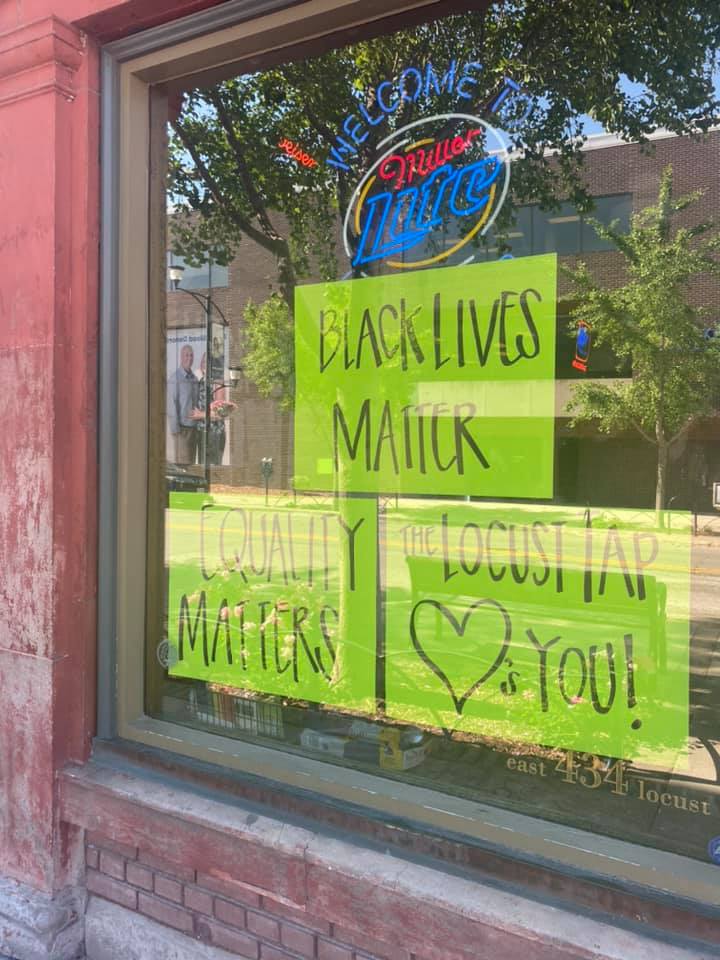 WELCOME TO
Miller
Lite
BLACK LIVES
MATTER
EQUALITY
MATTERS
THE LOCUST TAP
♡'s YOU!
east 434 locust